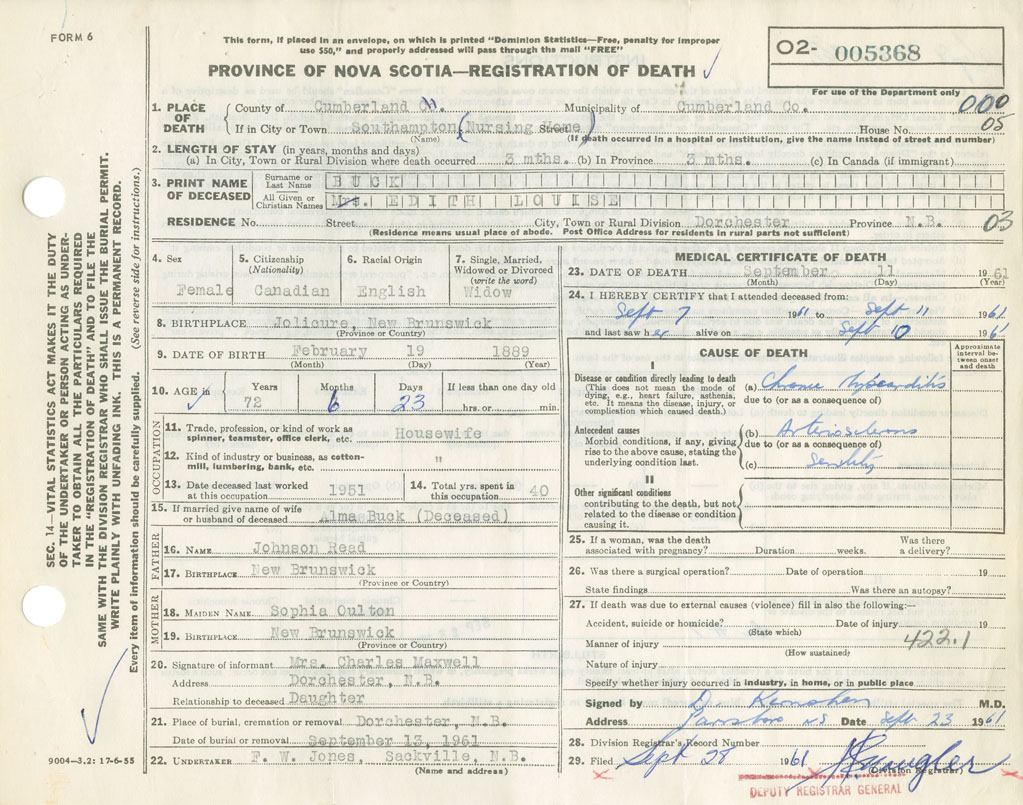 FORM 6
This form, if placed in an envelope, on which is printed "Dominion Statistics—Free, penalty for improper
use $50," and properly addressed will pass through the mail "FREE"
PROVINCE OF NOVA SCOTIA—REGISTRATION OF DEATH
02- 005368
For use of the Department only
000
05
03
1. PLACE OF DEATH
County of Cumberland Co. Municipality of Cumberland Co.
If in City or Town Southampton (Nursing Home) Street House No.
(Name) (If death occurred in a hospital or institution, give the name instead of street and number)
2. LENGTH OF STAY (in years, months and days)
(a) In City, Town or Rural Division where death occurred 3 mths. (b) In Province 3 mths. (c) In Canada (if immigrant)
3. PRINT NAME OF DECEASED
Surname or Last Name BUCK
All Given or Christian Names Mrs. EDITH LOUISE
RESIDENCE No. Street City, Town or Rural Division Dorchester Province N.B.
(Residence means usual place of abode. Post Office Address for residents in rural parts not sufficient)
4. Sex
Female
5. Citizenship
(Nationality)
Canadian
6. Racial Origin
English
7. Single, Married,
Widowed or Divorced
(write the word)
Widow
8. BIRTHPLACE Jolicure, New Brunswick
(Province or Country)
9. DATE OF BIRTH February 19 1889
(Month) (Day) (Year)
10. AGE in Years Months Days If less than one day old
72 6 23 hrs. or min.
OCCUPATION
11. Trade, profession, or kind of work as
spinner, teamster, office clerk, etc. Housewife
12. Kind of industry or business, as cotton-
mill, lumbering, bank, etc. "
13. Date deceased last worked
at this occupation 1951
14. Total yrs. spent in
this occupation 40
15. If married give name of wife
or husband of deceased Alma Buck (Deceased)
FATHER
16. NAME Johnson Read
17. BIRTHPLACE New Brunswick
(Province or Country)
MOTHER
18. MAIDEN NAME. Sophia Oulton
19. BIRTHPLACE New Brunswick
(Province or Country)
20. Signature of informant Mrs. Charles Maxwell
Address Dorchester, N.B.
Relationship to deceased Daughter
21. Place of burial, cremation or removal Dorchester, N.B.
Date of burial or removal September 13, 1961
22. UNDERTAKER F. W. Jones, Sackville, N.B.
(Name and address)
MEDICAL CERTIFICATE OF DEATH
23. DATE OF DEATH September 11 1961
(Month) (Day) (Year)
24. I HEREBY CERTIFY that I attended deceased from:
Sept 7 1961 to Sept 11 1961
and last saw her alive on Sept 10 196
CAUSE OF DEATH
Approximate interval between onset and death
I
Disease or condition directly leading to death
(This does not mean the mode of
dying, e.g., heart failure, asthenia,
etc. It means the disease, injury, or
complication which caused death.)
(a) Chronic Myocarditis
due to (or as a consequence of)
Antecedent causes
Morbid conditions, if any, giving
rise to the above cause, stating the
underlying condition last.
(b) Arteriosclerosis
due to (or as a consequence of)
(c) Senility
II
Other significant conditions
contributing to the death, but not
related to the disease or condition
causing it.
25. If a woman, was the death Was there
associated with pregnancy? Duration weeks. a delivery?
26. Was there a surgical operation? Date of operation 19
State findings Was there an autopsy?
27. If death was due to external causes (violence) fill in also the following:—
Accident, suicide or homicide? Date of injury 19
(State which)
Manner of injury 422.1
(How sustained)
Nature of injury
Specify whether injury occurred in industry, in home, or in public place
Signed by M.D.
Address Parrsboro NS Date Sept 23 1961
28. Division Registrar's Record Number
29. Filed Sept 28 1961
(Division Registrar)
DEPUTY REGISTRAR GENERAL
SEC. 14—VITAL STATISTICS ACT MAKES IT THE DUTY
OF THE UNDERTAKER OR PERSON ACTING AS UNDER-
TAKER TO OBTAIN ALL THE PARTICULARS REQUIRED
IN THE "REGISTRATION OF DEATH" AND TO FILE THE
SAME WITH THE DIVISION REGISTRAR WHO SHALL ISSUE THE BURIAL PERMIT.
WRITE PLAINLY WITH UNFADING INK. THIS IS A PERMANENT RECORD.
Every item of information should be carefully supplied. (See reverse side for instructions.)
9004—3.2: 17-6-55